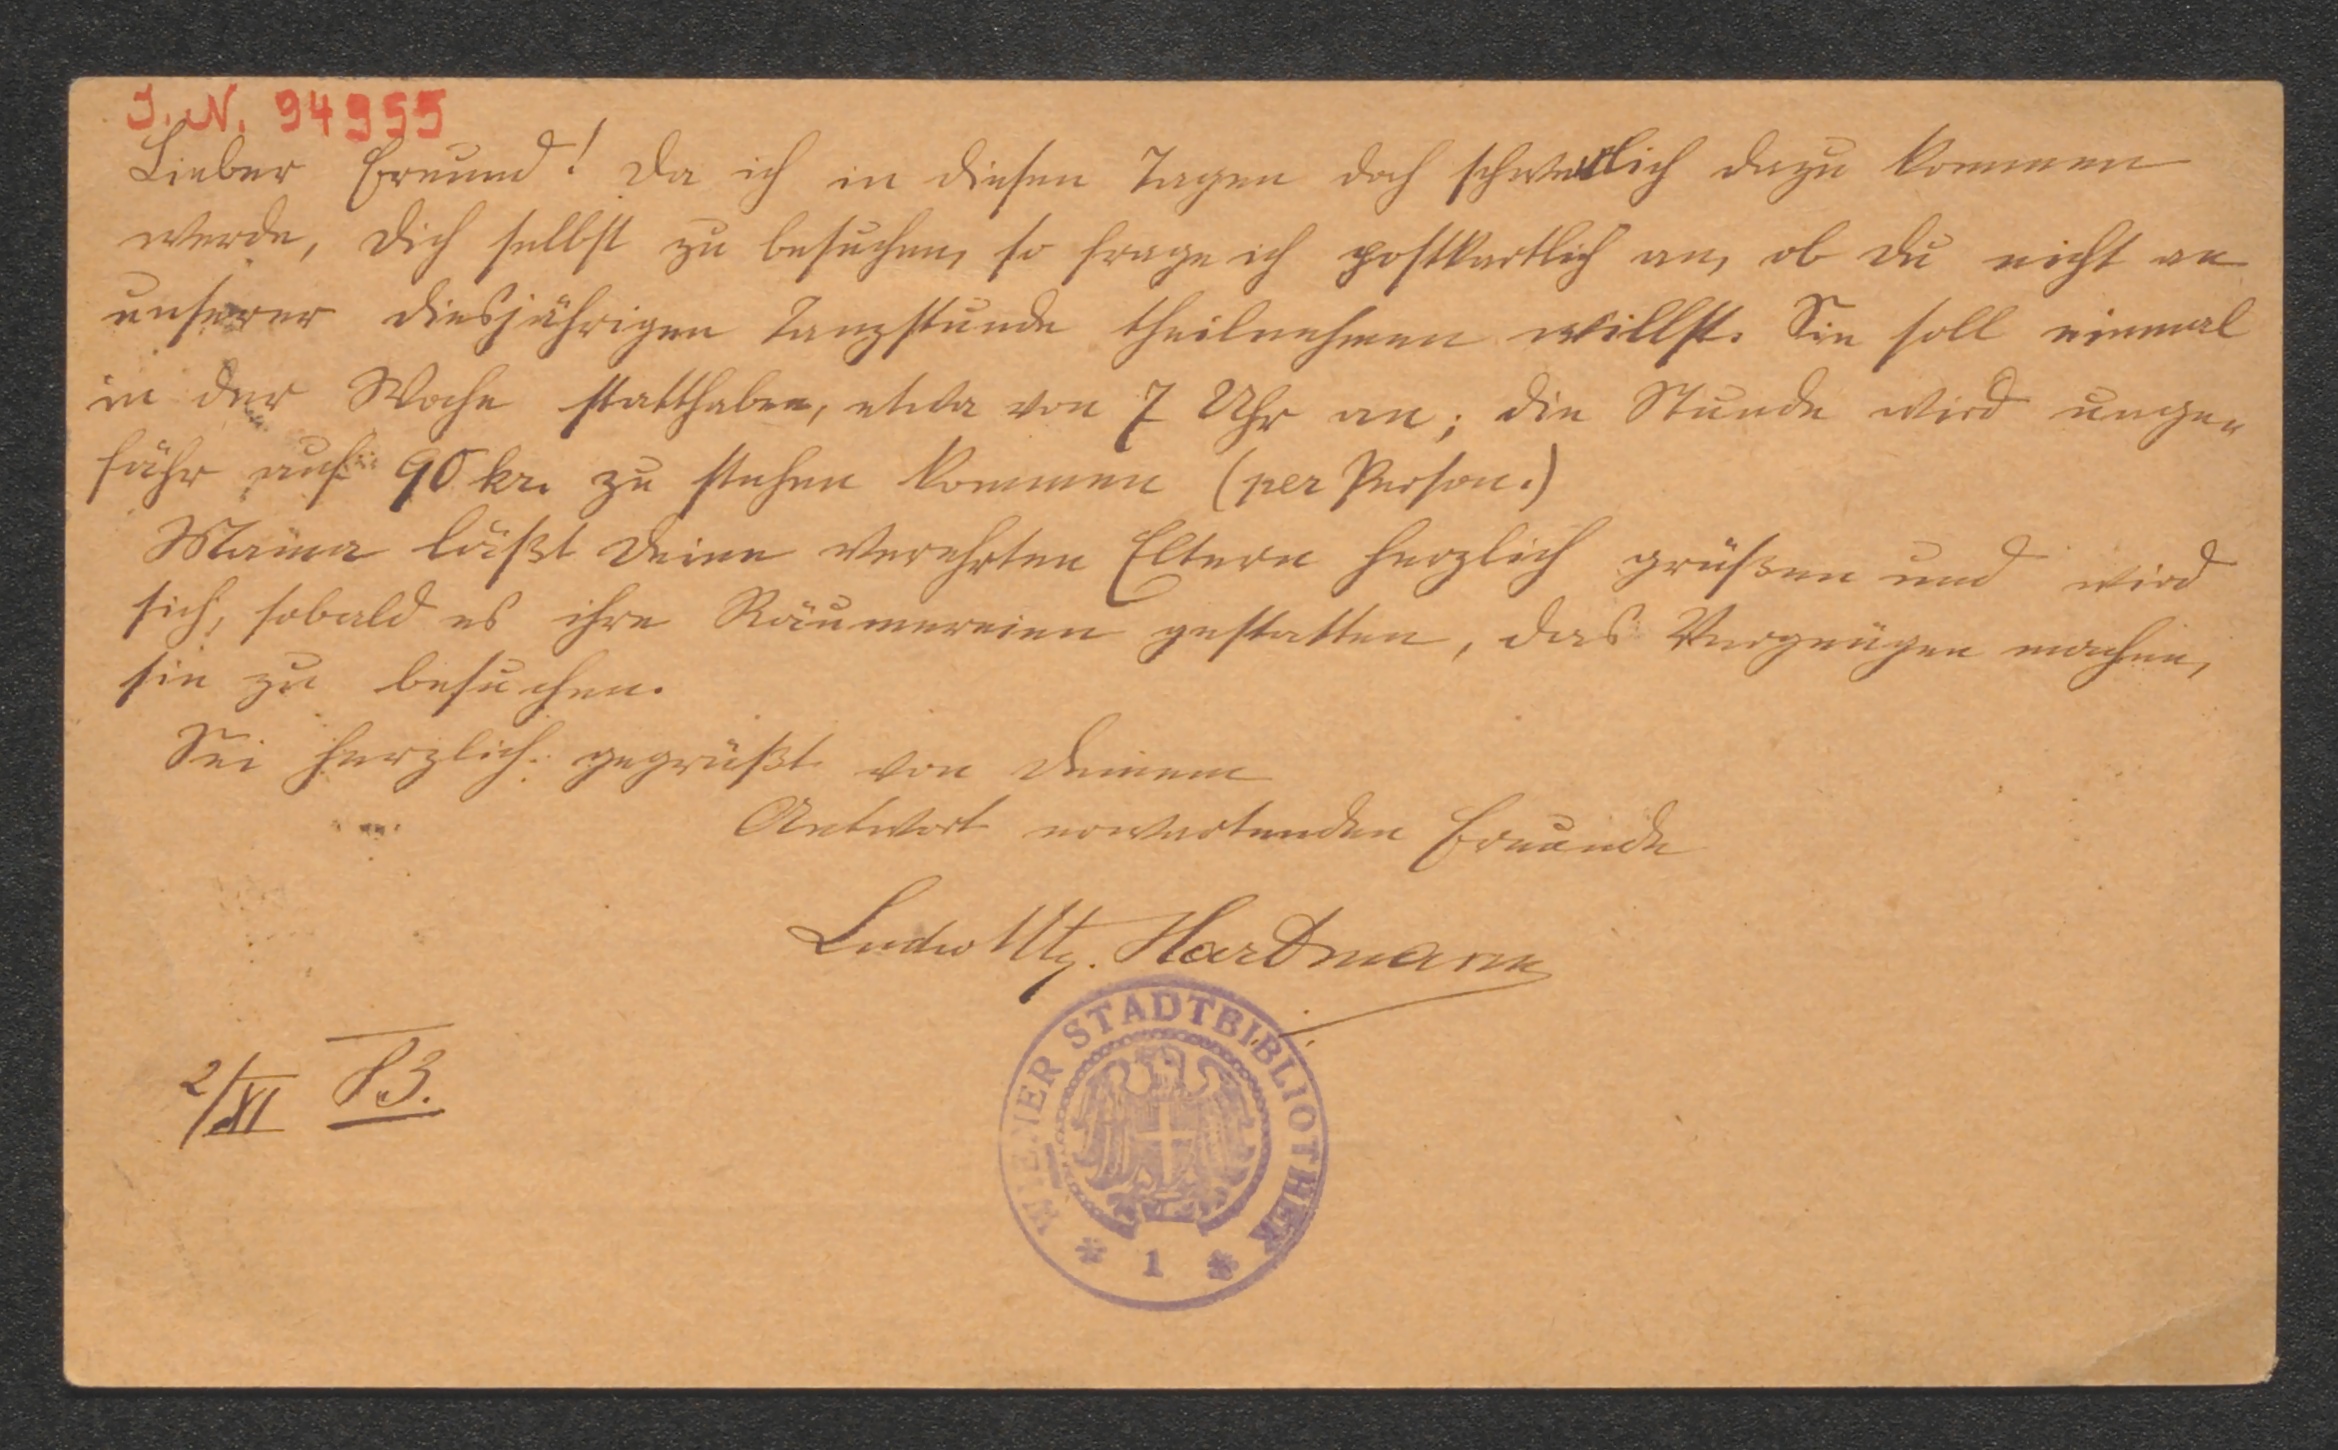 J. N. 94955
Lieber Freund! Da ich in diesen Tagen doch schwerlich dazu kommen
werde, Dich selbst zu besuchen, so frage ich postkartlich an, ob Du nicht an
unserer diesjährigen Tanzstunde theilnehmen willst. Sie soll einmal
in der Woche statthaben, etwa von 7 Uhr an; die Stunde wird unge-
fähr auf 90 kr. zu stehen kommen (per Person.)
Mama läßt Deine verehrten Eltern herzlich grüßen und wird
sich, sobald es ihre Räumereien gestatten, das Vergnügen machen,
sie zu besuchen.
Sei herzlich gegrüßt von Deinem
Antwort erwartenden Freunde
Ludo Mtz. Hartmann
2/XI 83.
WIENER STADTBIBLIOTHEK
* 1 *